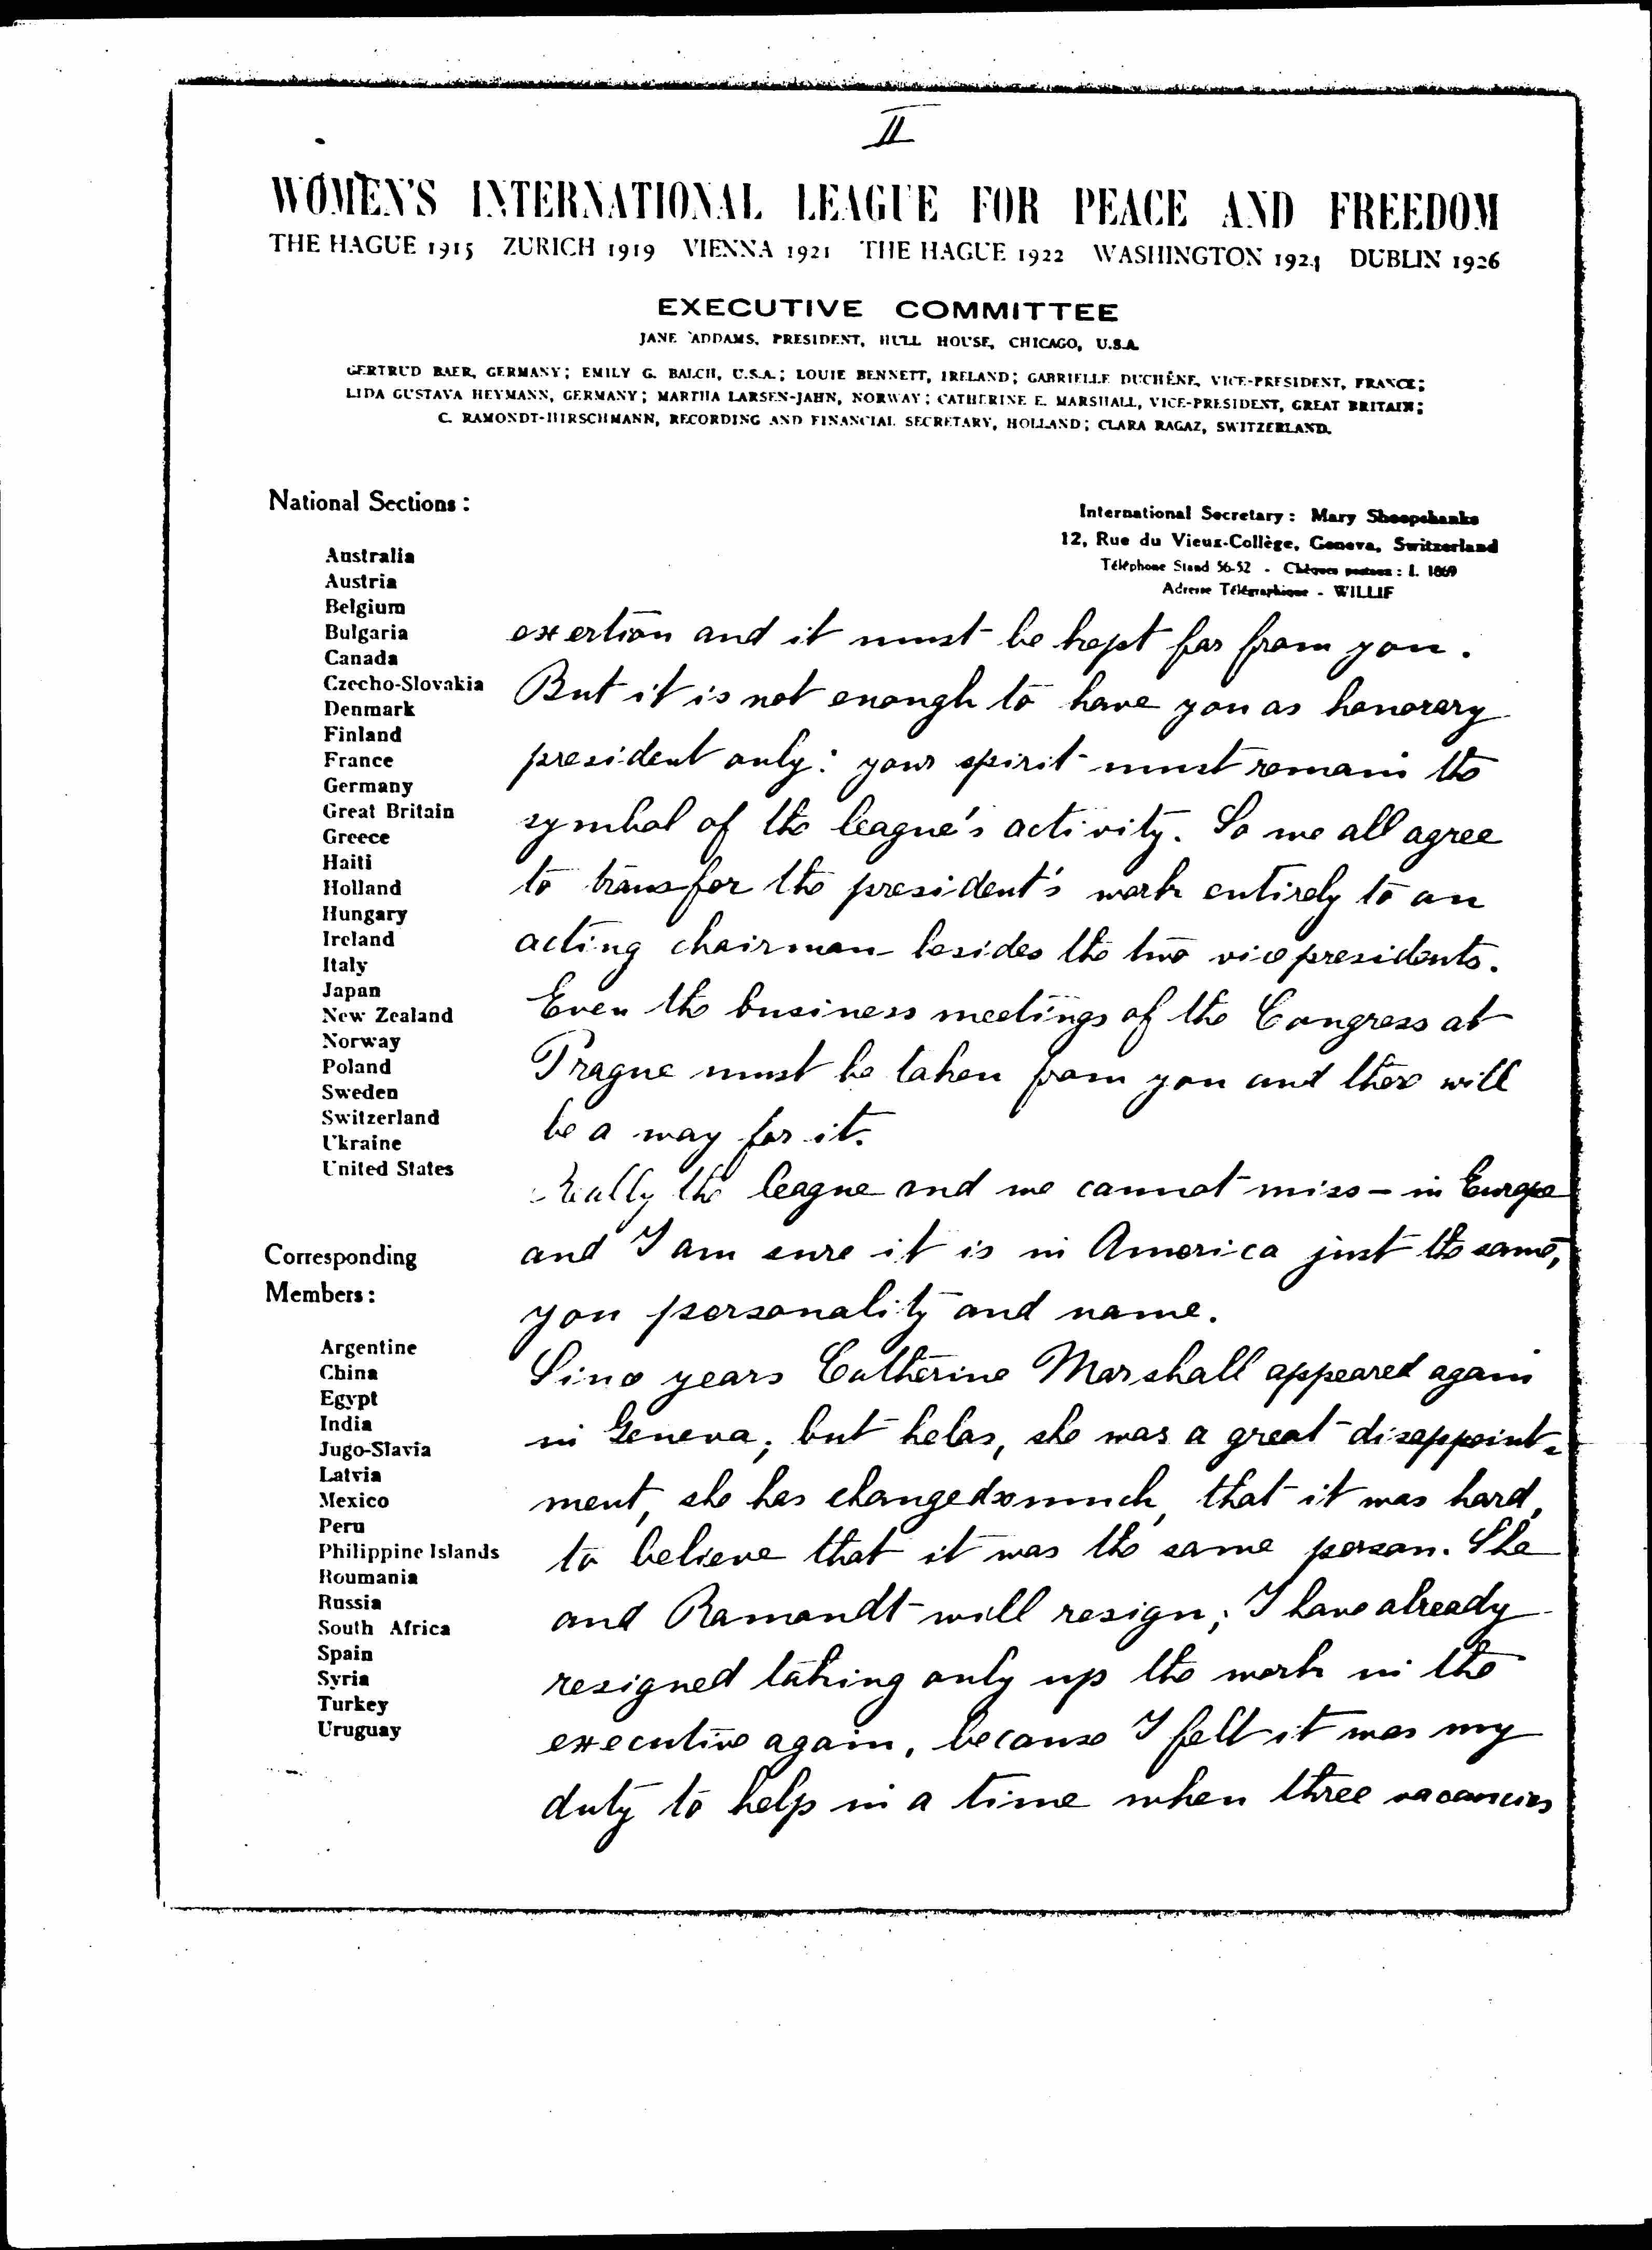 II
WOMEN'S INTERNATIONAL LEAGUE FOR PEACE AND FREEDOM
THE HAGUE 1915 ZURICH 1919 VIENNA 1921 THE HAGUE 1922 WASHINGTON 1924 DUBLIN 1926
EXECUTIVE COMMITTEE
JANE ADDAMS, PRESIDENT, HULL HOUSE, CHICAGO, U.S.A.
GERTRUD BAER, GERMANY; EMILY G. BALCH, U.S.A.; LOUIE BENNETT, IRELAND; GABRIELLE DUCHÊNE, VICE-PRESIDENT, FRANCE;
LIDA GUSTAVA HEYMANN, GERMANY; MARTHA LARSEN-JAHN, NORWAY; CATHERINE E. MARSHALL, VICE-PRESIDENT, GREAT BRITAIN;
C. RAMONDT-HIRSCHMANN, RECORDING AND FINANCIAL SECRETARY, HOLLAND; CLARA RAGAZ, SWITZERLAND.
International Secretary: Mary Sheepshanks
12, Rue du Vieux-Collège, Geneva, Switzerland
Téléphone Stand 56-52 - Chèques postaux: I. 1869
Adresse Télégraphique - WILLIF
National Sections:
Australia
Austria
Belgium
Bulgaria
Canada
Czecho-Slovakia
Denmark
Finland
France
Germany
Great Britain
Greece
Haiti
Holland
Hungary
Ireland
Italy
Japan
New Zealand
Norway
Poland
Sweden
Switzerland
Ukraine
United States
Corresponding
Members:
Argentine
China
Egypt
India
Jugo-Slavia
Latvia
Mexico
Peru
Philippine Islands
Roumania
Russia
South Africa
Spain
Syria
Turkey
Uruguay
exertion and it must be kept far from you.
But it is not enough to have you as honorary
president only: your spirit must remain the
symbol of the league's activity. So we all agree
to transfer the president's work entirely to an
acting chairman besides the two vicepresidents.
Even the business meetings of the Congress at
Prague must be taken from you and there will
be a way for it.
Really the league and we cannot miss – in Europe
and I am sure it is in America just the same,
you personality and name.
Since years Catherine Marshall appeared again
in Geneva; but helas, she was a great disappoint-
ment, she has changed so much, that it was hard,
to believe that it was the same person. She
and Ramondt will resign; I have already
resigned taking only up the work in the
executive again, because I felt it was my
duty to help in a time when three vacancies